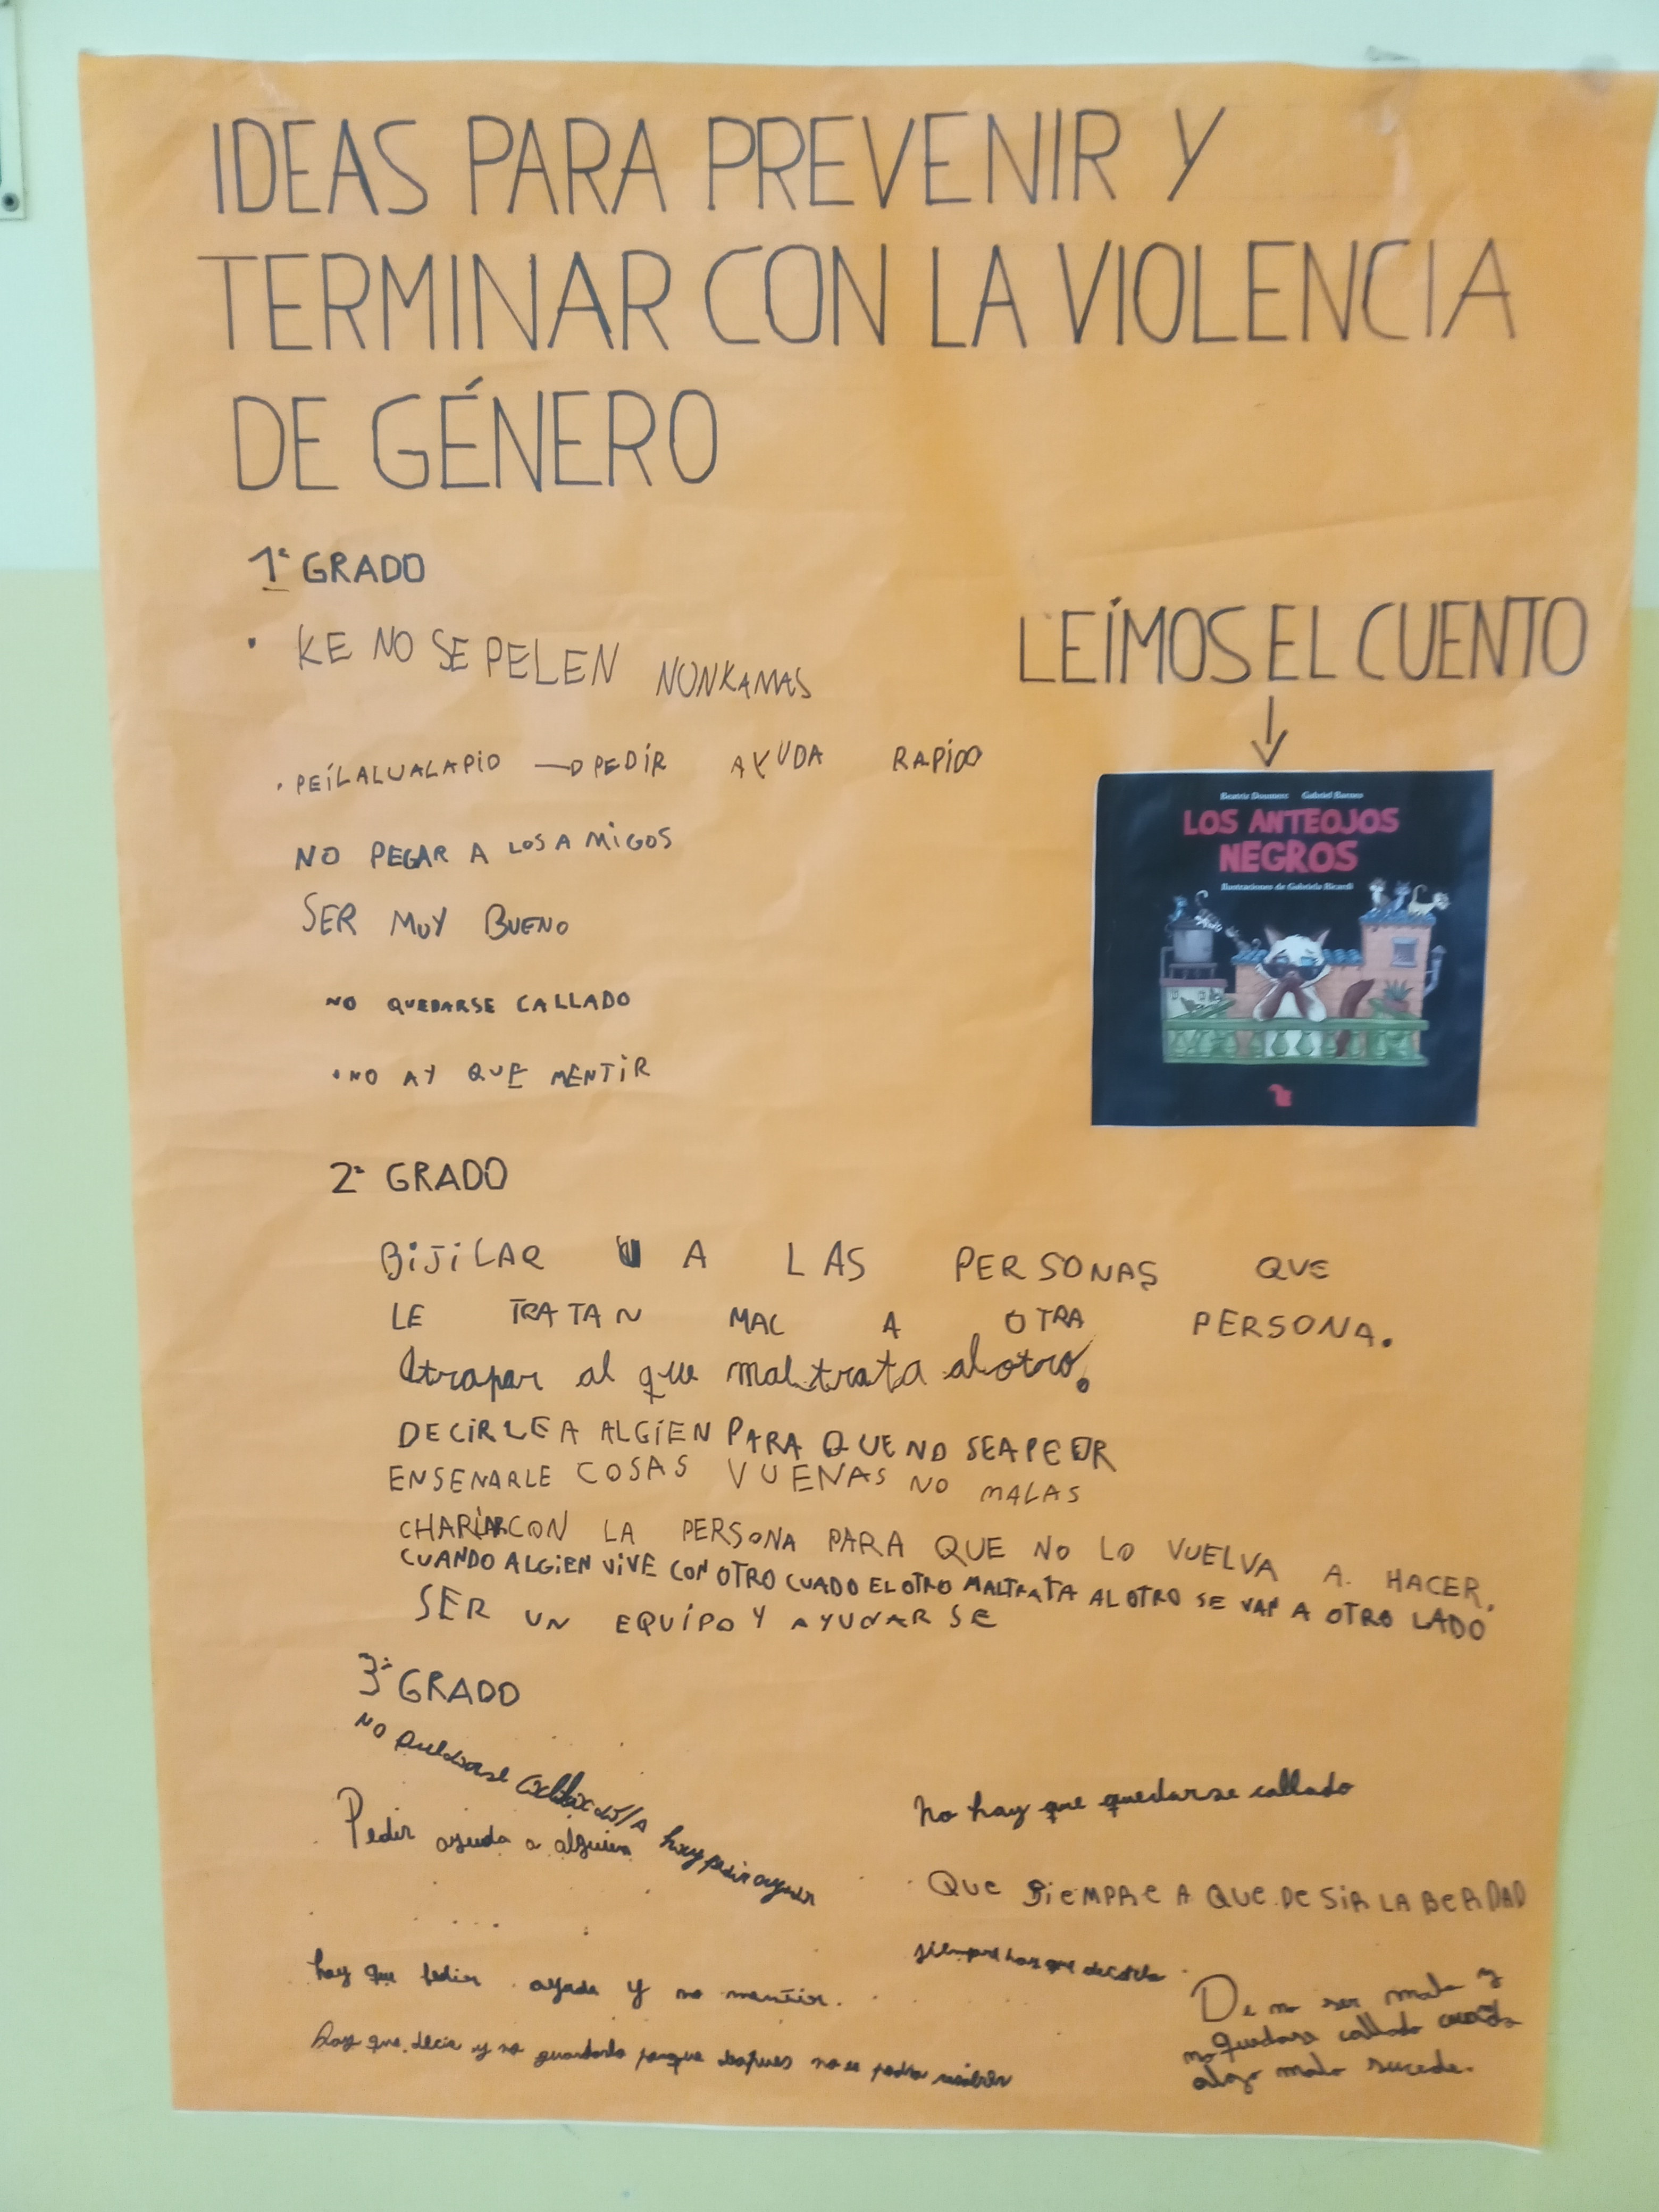 IDEAS PARA PREVENIR Y
TERMINAR CON LA VIOLENCIA
DE GÉNERO
1º GRADO
• KE NO SE PELEN NUNKAMAS
• PEÍLALUALAPIO → PEDÍR AYUDA RAPÍDO
NO PEGAR A LOS AMIGOS
SER MUY BUENO
NO QUEDARSE CALLADO
• NO AY QUE MENTIR
LEÍMOS EL CUENTO
↓
Beatriz Doumerc Gabriel Barnes
LOS ANTEOJOS
NEGROS
Ilustraciones de Gabriela Ricardi
2º GRADO
BIJILAR A LAS PERSONAS QUE
LE TRATAN MAL A OTRA PERSONA.
Atrapar al que maltrata al otro.
DECIRLE A ALGIEN PARA QUE NO SEA PEOR
ENSENARLE COSAS VUENAS NO MALAS
CHARLAR CON LA PERSONA PARA QUE NO LO VUELVA A. HACER.
CUANDO ALGIEN VIVE CON OTRO CUADO EL OTRO MALTRATA AL OTRO SE VAN A OTRO LADO
SER UN EQUIPO Y AYUDARSE
3º GRADO
NO quedarse callado/A hay pedir
Pedir ayuda a alguien
hay que pedir ayuda y no mentir.
hay que decir y no guardarlo porque no se podra
No hay que quedarse callado
QUE SIEMPRE A QUE DE SIR LA BERDAD
siempre hay que
De no ser malo y
no quedarse callado cuando
algo malo sucede.